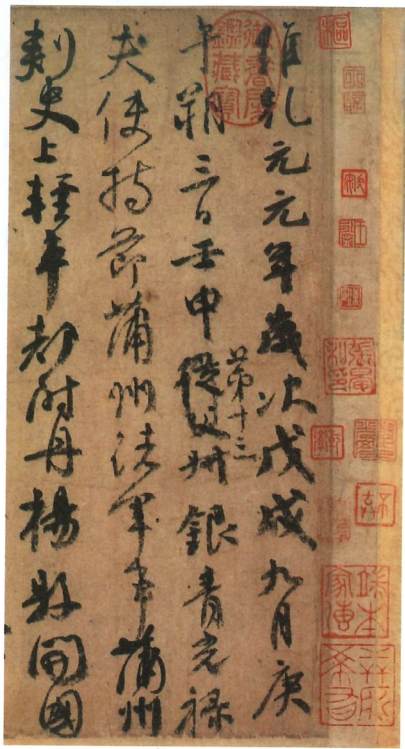 維乾元元年歲次戊戌九月庚
午朔三日壬申第十三從父叔銀青光祿
夫使持節蒲州諸軍事蒲州
刺史上輕車都尉丹楊縣開國
御書房鑑藏寶
張晏私印